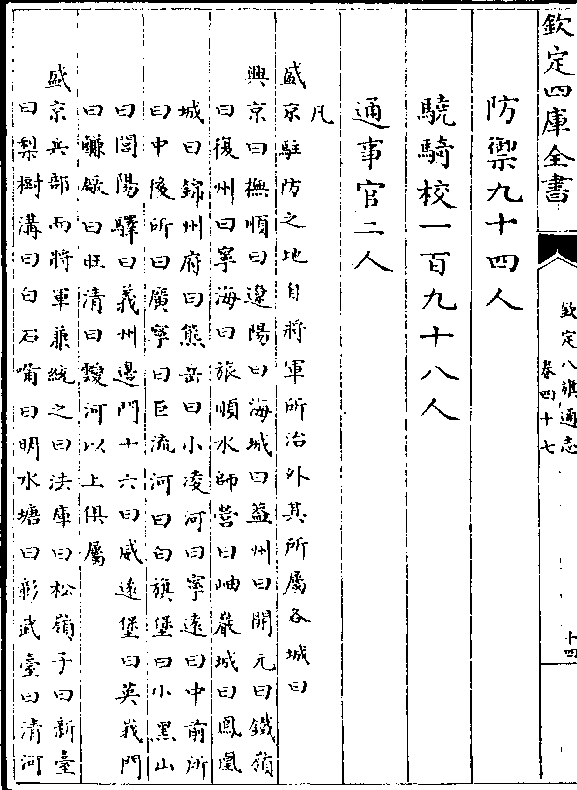 欽定四庫全書
欽定八旗通志
卷四十七
十四
防禦九十四人
驍騎校一百九十八人
通事官二人
凡
盛京駐防之地自將軍所治外其所屬各城曰
興京曰撫順曰遼陽曰海城曰葢州曰開元曰鐵嶺
曰復州曰寧海曰旅順水師營曰岫巖城曰鳳凰
城曰錦州府曰熊岳曰小凌河曰寧遠曰中前所
曰中後所曰廣寧曰巨流河曰白旗堡曰小黑山
曰閭陽驛曰義州邊門十六曰威遠堡曰英莪門
曰鹻厰曰旺清曰靉河以上俱屬
盛京兵部而將軍兼統之曰法庫曰松嶺子曰新臺
曰梨樹溝曰白石嘴曰明水塘曰彰武臺曰清河